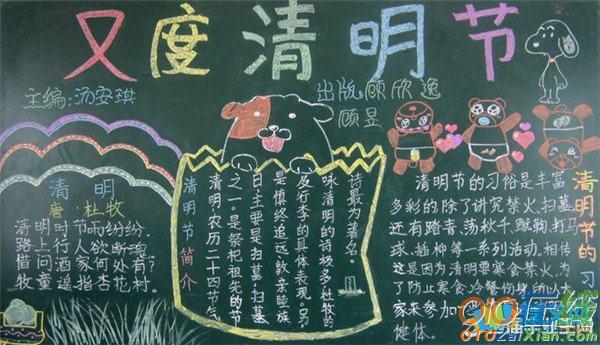 又度清明节
主编:汤安琪
出版:顾欣逸
顾昱
清明
唐·杜牧
清明时节雨纷纷,
路上行人欲断魂。
借问酒家何处有?
牧童遥指杏花村。
清明节简介
清明,农历二十四节气
之一。是祭祀祖先的节
日,主要是扫墓。扫墓
是慎终追远、敦亲睦族
及行孝的具体表现。另:
咏清明的诗极多,杜牧的
诗最为著名。
清明节的习
清明节的习俗是丰富
多彩的,除了讲究禁火、扫墓,
还有踏青、荡秋千、蹴鞠、打马
球、插柳等一系列活动。相传
这是因为清明要寒食禁火,为
了防止寒食冷餐伤身,所以大
家来参加
健体。